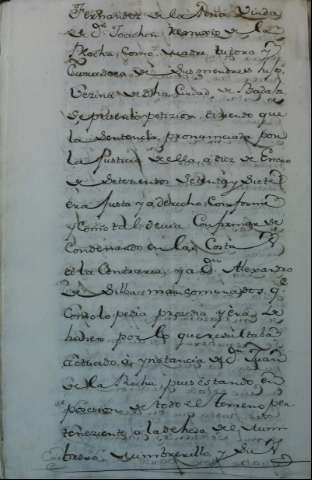 Fernandez de la Peña Viuda
de Dn Joachin Romualdo de la
Rocha, como Madre tutora y
Curadora de sus menores hijos
Vecina de dha Ciudad, de
se presentó peticion diciendo que
la Sentencia, pronunciada por
la Justicia de ella, a diez de Enero
de Setecientos Setenta y Siete
era Justa y a derecho Conforme
y Como tal se avia Confirmar
Condenando en las Costas
a la Contraria, y a Dn Alexandro
de mancomunados, qe
asi lo pedia procedia y era de
hacer, por lo que resultaba
actuado, a ynstancia de Dn Juan
de la Rocha, pues estando en
posesion de todo el terreno per
teneciente a la dehesa del
y